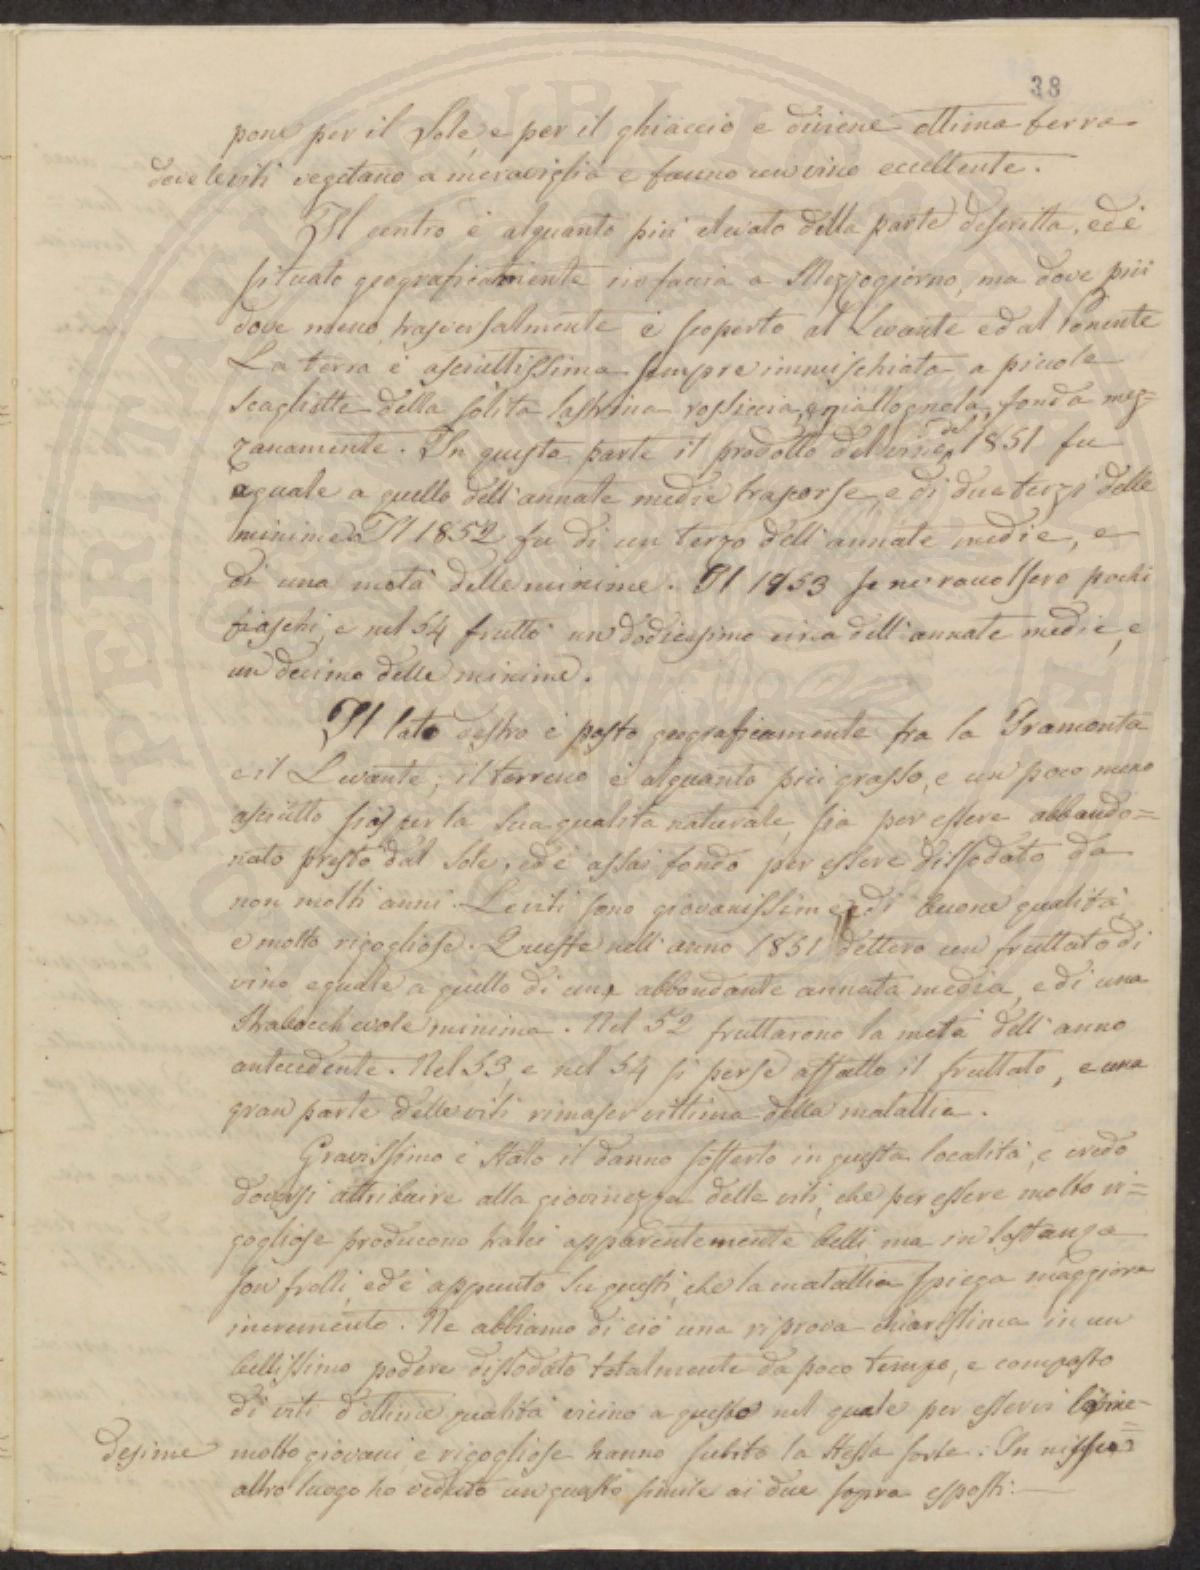 38
pone per il Sole, e per il ghiaccio e diviene ottima terra
dove le viti vegetano a meraviglia e fanno un vino eccellente.
Il centro è alquanto più elevato della parte descritta, ed è
situato geograficamente in faccia a Mezzogiorno, ma dove più
dove meno, trasversalmente è scoperto al Levante ed al Ponente
La terra è asciuttissima sempre immischiata a piccole
scagliette della solita lastrina rossiccia, e giallognola, fonda mez=
zanamente. In questa parte il prodotto del vino del 1851 fu
eguale a quello dell'annate medie trascorse, e di due terzi delle
minime. Il 1852 fu di un terzo dell'annate medie, e
di una metà delle minime. Il 1853 se ne raccolsero pochi
fiaschi, e nel 54 fruttò un dodicesimo circa dell'annate medie, e
un decimo delle minime.
Il lato destro è posto geograficamente fra la Tramonta
e il Levante; il terreno è alquanto più grasso, e un poco meno
asciutto sia per la sua qualità naturale, sia per essere abbando=
nato presto dal Sole, ed è assai fondo per essere dissodato da
non molti anni. Le viti sono giovanissime e di buone qualità
e molto rigogliose. Queste nell'anno 1851 dettero un fruttato di
vino eguale a quello di una abbondante annata media, e di una
strabocchevole minima. Nel 52 fruttarono la metà dell'anno
antecedente. Nel 53, e nel 54 si perse affatto il fruttato, e una
gran parte delle viti rimaser vittima della malattia.
Gravissimo è stato il danno sofferto in questa località, e credo
doversi attribuire alla giovinezza delle viti, che per essere molto ri=
gogliose producono tralci apparentemente belli ma in sostanza
son frolli, ed è appunto su questi, che la malattia spiega maggiore
incremento. Ne abbiamo di ciò una riprova chiarissima in un
bellissimo podere dissodato totalmente da poco tempo, e composto
di viti d'ottime qualità vicino a questo nel quale per esservi
desime molto giovani, e rigogliose hanno subito la stessa sorte. In nissun
altro luogo ho veduto un guasto simile ai due sopra esposti.
SPERITATI PUBLICAE